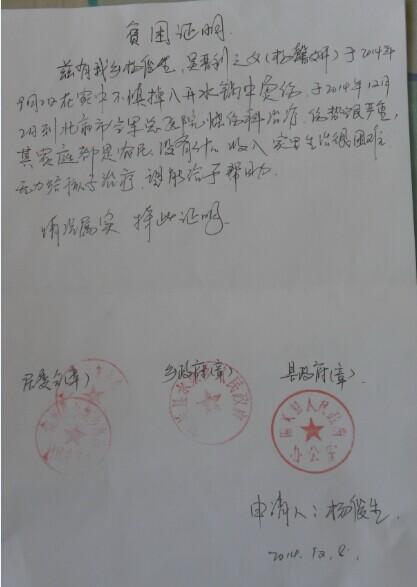 贫困证明
兹有我乡杨俊生,吴香利之女(杨馨妍)于2014年
9月2日在家中不慎掉入开水锅中烫伤,于2014年12月
2日到北京市空军总医院烧伤科治疗,伤势很严重,
其家庭都是农民,没有什么收入家里生活很困难
无力给孩子治疗,请能给予帮助.
情况属实 特此证明.
居委会(章) 乡政府(章) 县政府(章).
人民政府
县人民政府
办公室
申请人:杨俊生
2014.12.2.